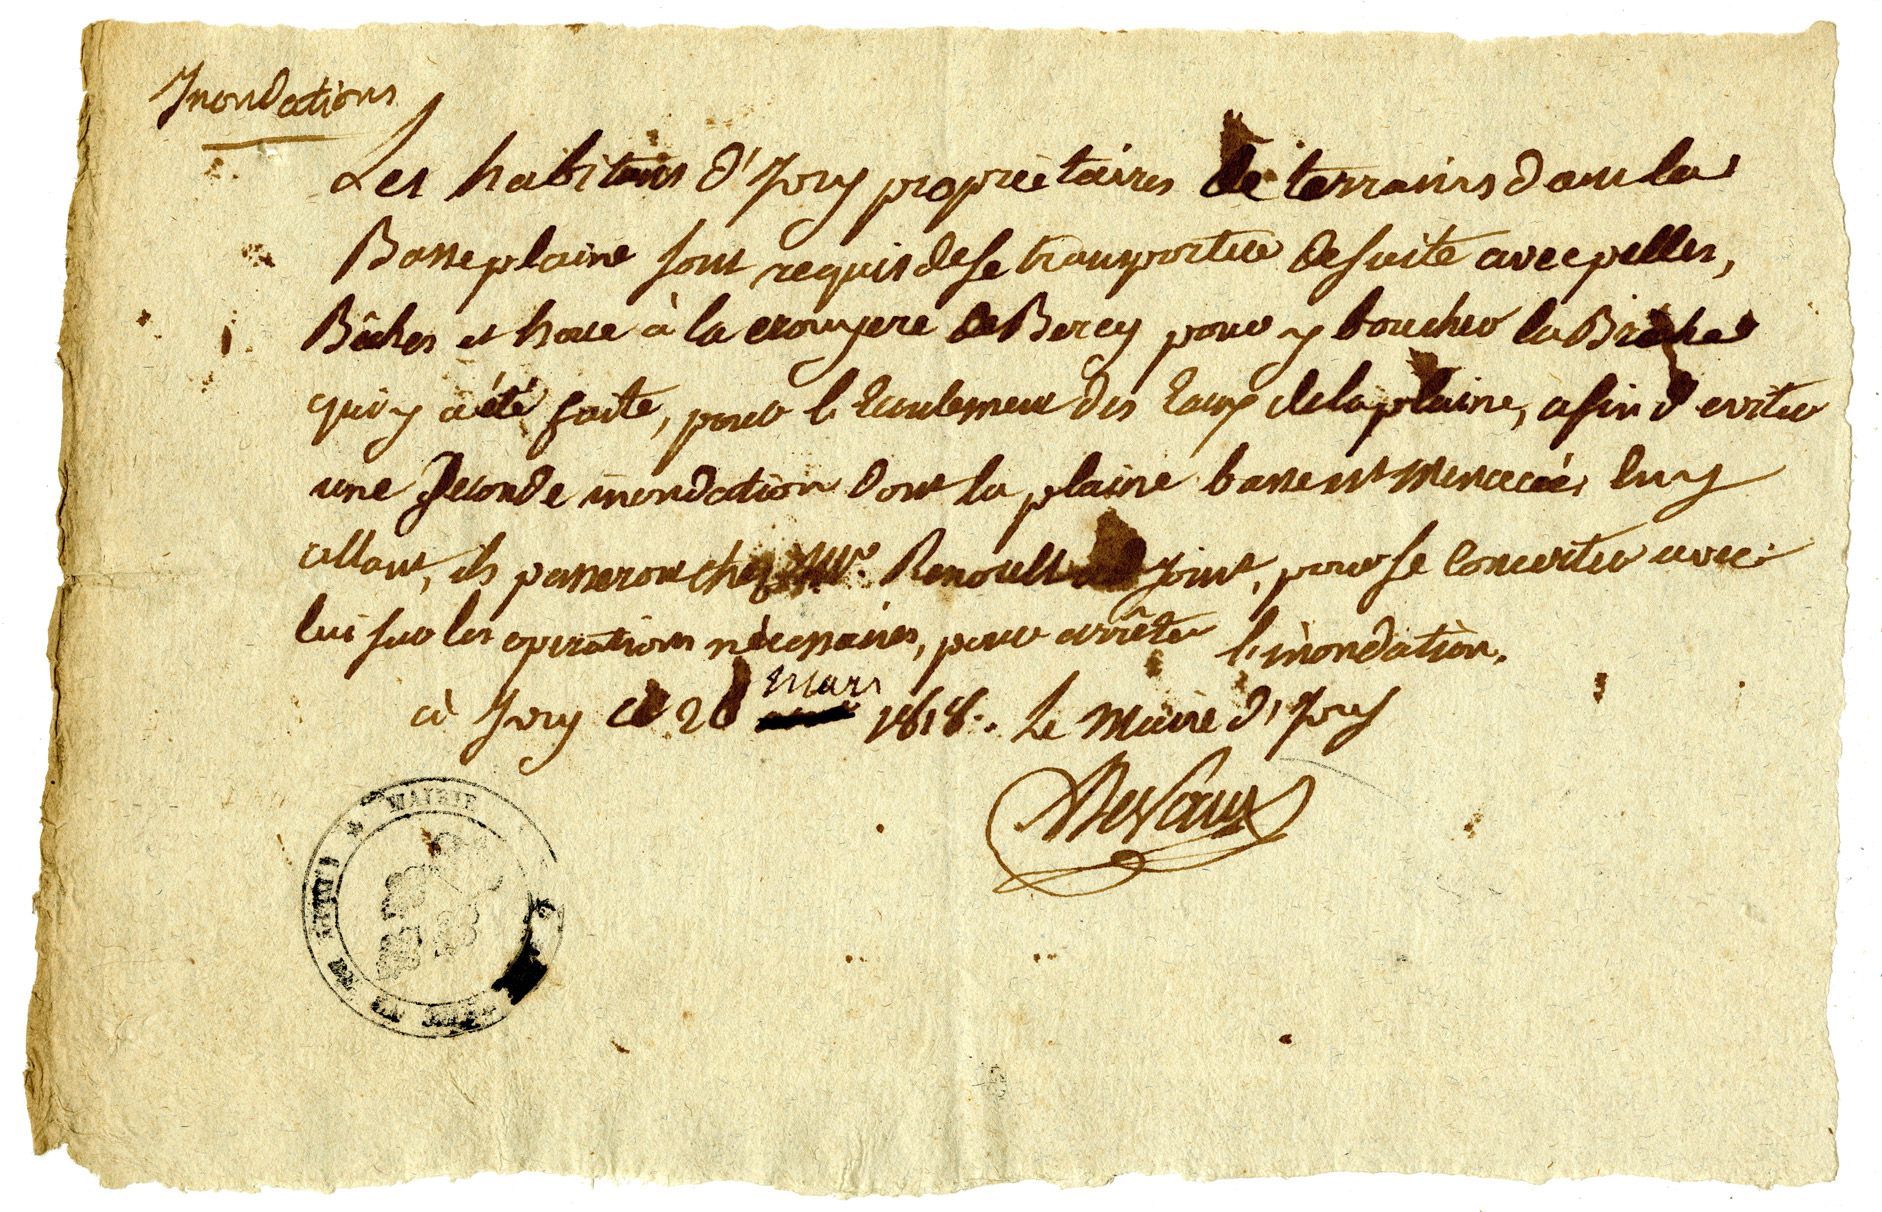 Inondations
Les habitans d'Ivry propriétaires de terrains dans la
Basse plaine sont requis de se transporter de suite avec pelles,
Bêches et houe à la croupere de Bercy pour y boucher la Brêche
qui y a été faite, pour l'Ecoulement des Eaux de la plaine, afin d'eviter
une seconde inondation dont la plaine basse est menacée. En y
allant, ils passeront chez Mr. Renoult adjoint, pour se concerter avec
lui sur les opérations nécessaires, pour arrêter l'inondation.
à Ivry ce 28 mars 1818. Le Maire d'Ivry
MAIRIE